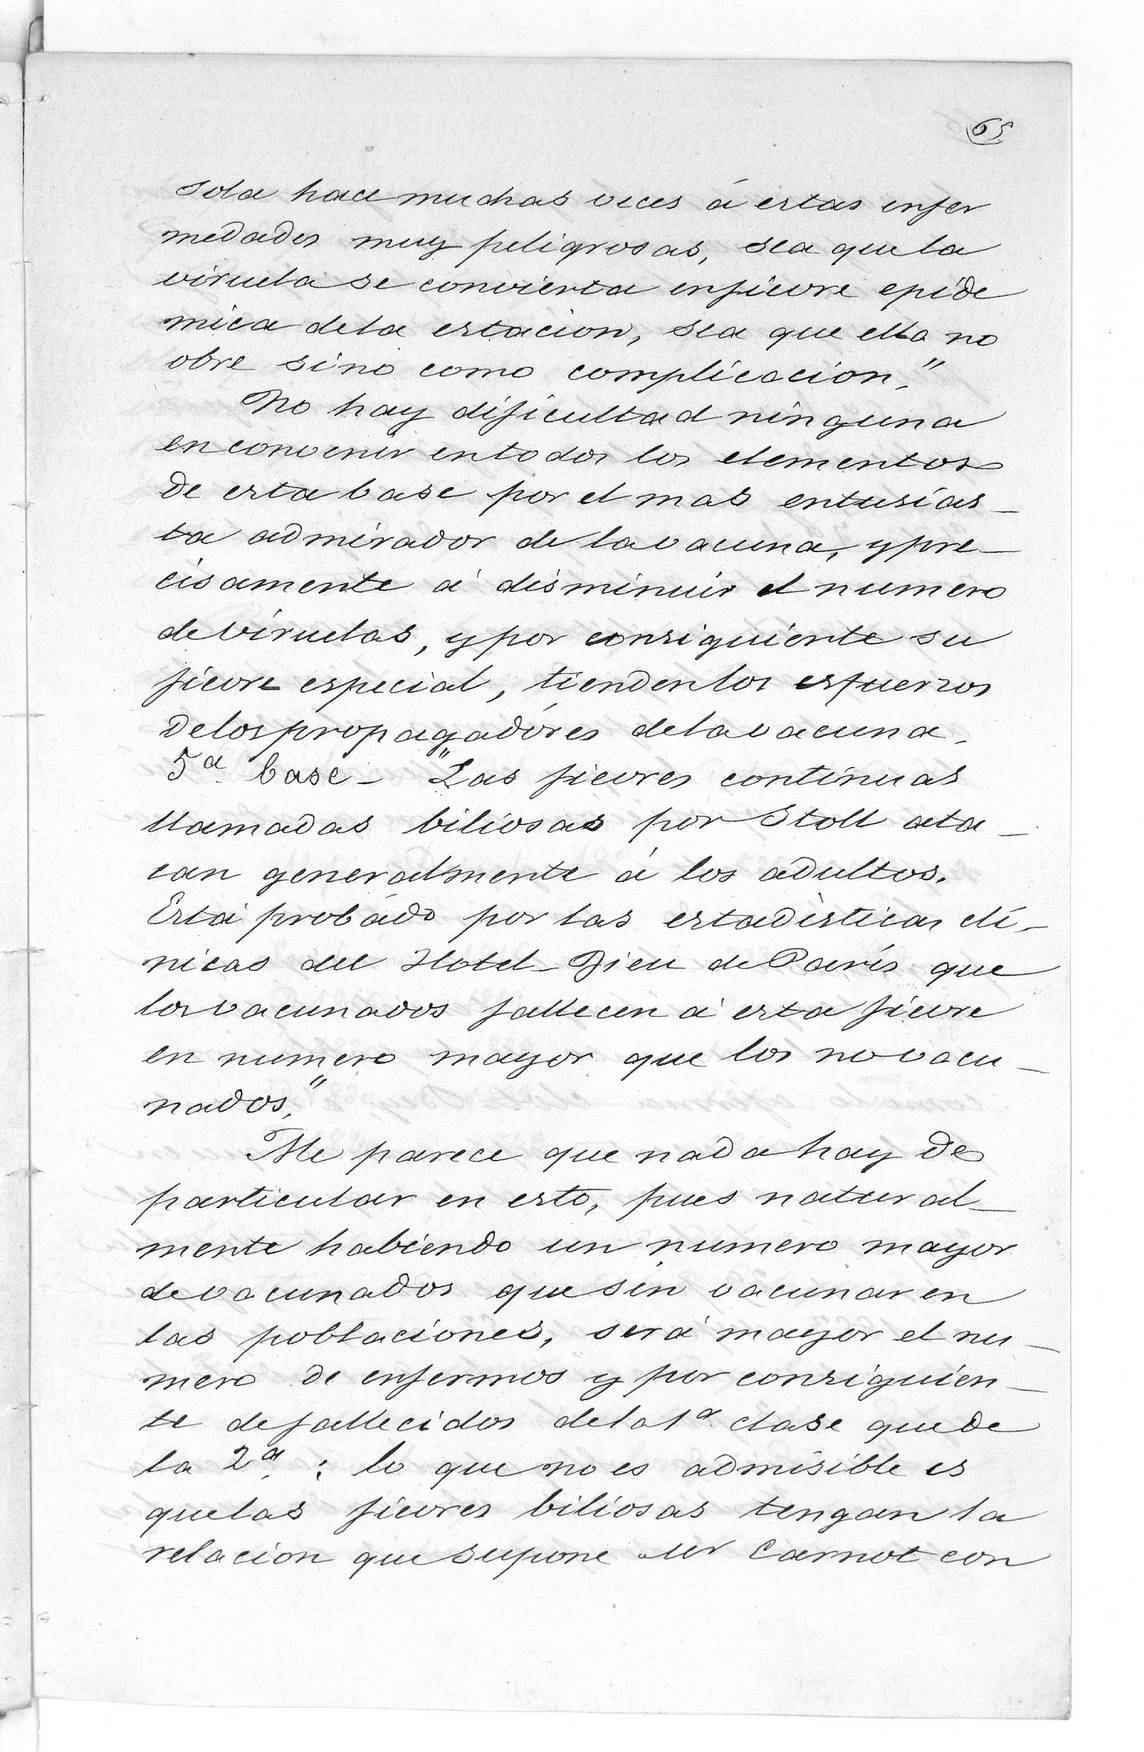 65
sola hace muchas veces á estas enfer
medades muy peligrosas, sea que la
viruela se convierta en fievre epide
mica de la estacion, sea que ella no
obre sino como complicacion."
No hay dificultad ninguna
en convenir en todos los elementos
de esta base por el mas entusias-
ta admirador de la vacuna, y pre-
cisamente á disminuir el numero
de viruelas, y por consiguiente su
fievre especial, tienden los esfuerzos
de los propagadores de la vacuna.
5ª base - "Las fievres continuas
llamadas biliosas por Stoll ata-
can generalmente á los adultos.
Está probado por las estadisticas clí-
nicas del Hotel-Dieu de París que
los vacunados fallecen á esta fievre
en numero mayor que los no vacu-
nados."
Me parece que nada hay de
particular en esto, pues natural-
mente habiendo un numero mayor
de vacunados que sin vacunar en
las poblaciones, será mayor el nu-
mero de enfermos y por consiguien-
te de fallecidos de la 1ª clase que de
la 2ª: lo que no es admisible es
que las fievres biliosas tengan la
relacion que supone Mr Carnot con